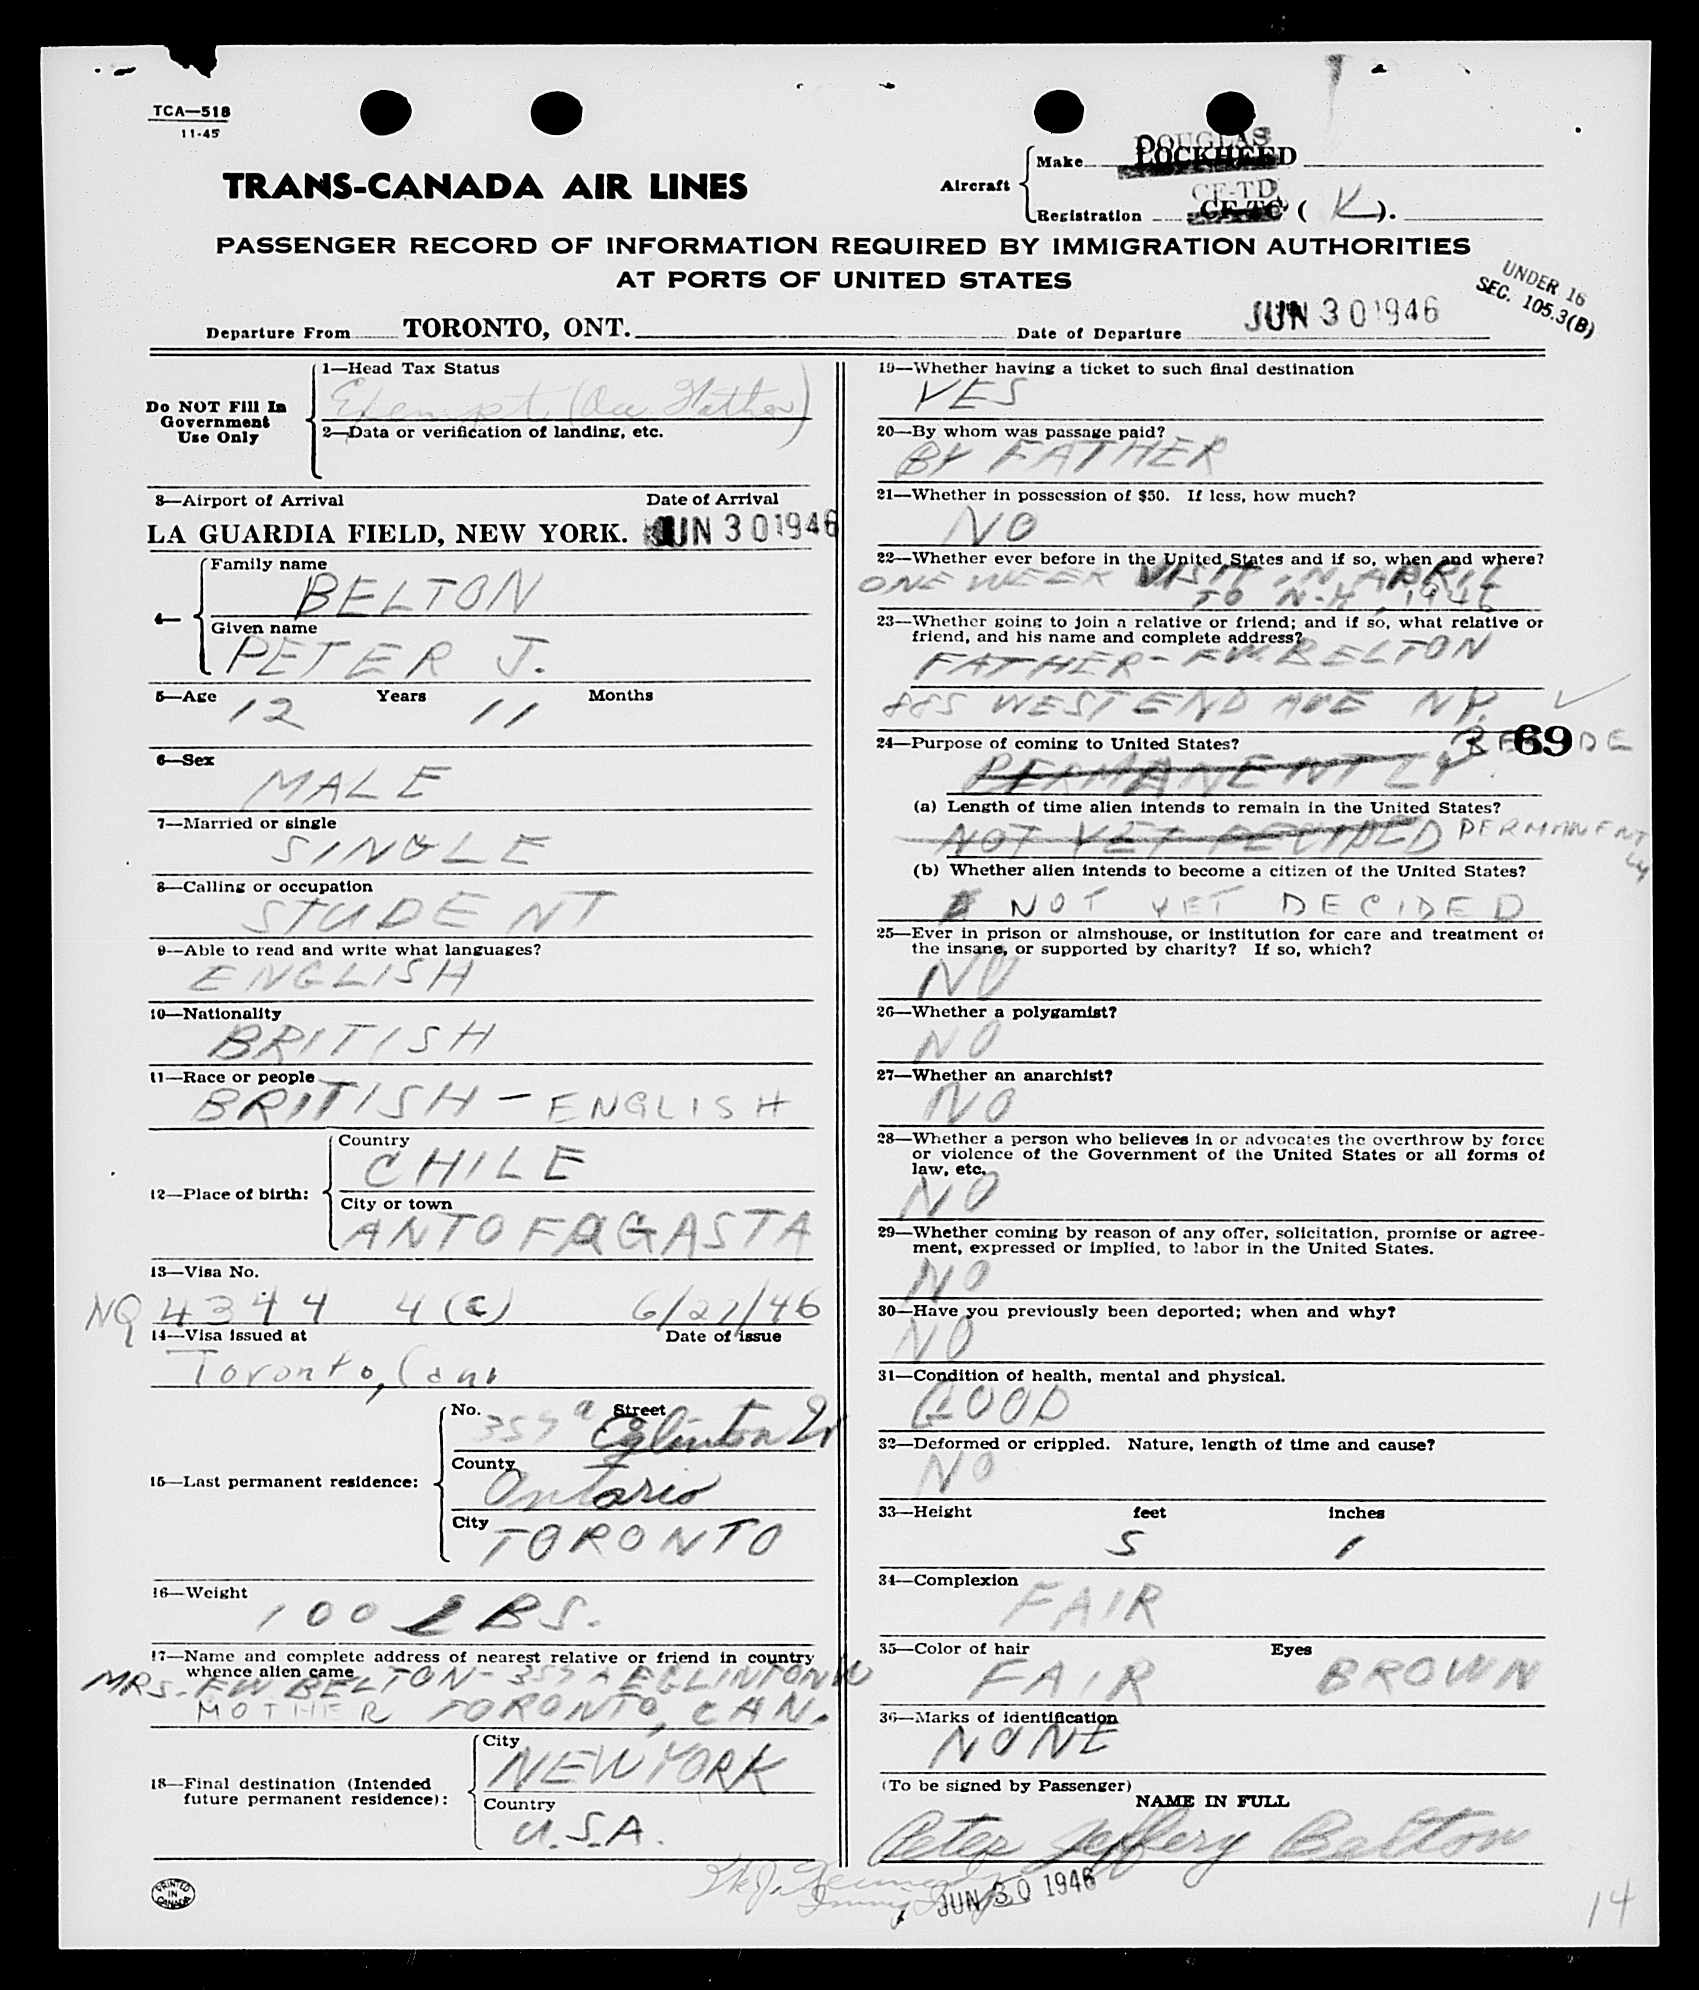 TCA—518
11-45
TRANS-CANADA AIR LINES
Aircraft
Make DOUGLAS LOCKHEED
Registration CF-TD CF-TC ( K ).
PASSENGER RECORD OF INFORMATION REQUIRED BY IMMIGRATION AUTHORITIES
AT PORTS OF UNITED STATES
UNDER 16
SEC. 105.3(B)
Departure From TORONTO, ONT. Date of Departure JUN 30 1946
Do NOT Fill In
Government
Use Only
1—Head Tax Status
Exempt (Acc Father)
2—Data or verification of landing, etc.
3—Airport of Arrival Date of Arrival
LA GUARDIA FIELD, NEW YORK. JUN 30 1946
4—
Family name
BELTON
Given name
PETER J.
5—Age 12 Years 11 Months
6—Sex
MALE
7—Married or single
SINGLE
8—Calling or occupation
STUDENT
9—Able to read and write what languages?
ENGLISH
10—Nationality
BRITISH
11—Race or people
BRITISH - ENGLISH
12—Place of birth:
Country
CHILE
City or town
ANTOFAGASTA
13—Visa No.
NQ 4344 4(c) 6/27/46
14—Visa issued at Date of issue
Toronto, Can
15—Last permanent residence:
No. Street
357 a Eglinton W
County
Ontario
City
TORONTO
16—Weight
100 LBS.
17—Name and complete address of nearest relative or friend in country
whence alien came
MRS. FW BELTON - 357 A EGLINTON W
MOTHER TORONTO, CAN.
18—Final destination (Intended
future permanent residence):
City
NEW YORK
Country
U.S.A.
PRINTED
IN
CANADA
19—Whether having a ticket to such final destination
YES
20—By whom was passage paid?
BY FATHER
21—Whether in possession of $50. If less, how much?
NO
22—Whether ever before in the United States and if so, when and where?
ONE WEEK VISIT IN APRIL
TO N.Y, 1946
23—Whether going to join a relative or friend; and if so, what relative or
friend, and his name and complete address?
FATHER - F.W. BELTON
885 WEST END AVE NY.
24—Purpose of coming to United States?
69
PERMANENTLY RESIDE
(a) Length of time alien intends to remain in the United States?
NOT YET DECIDED PERMANENTLY
(b) Whether alien intends to become a citizen of the United States?
NOT YET DECIDED
25—Ever in prison or almshouse, or institution for care and treatment of
the insane, or supported by charity? If so, which?
NO
26—Whether a polygamist?
NO
27—Whether an anarchist?
NO
28—Whether a person who believes in or advocates the overthrow by force
or violence of the Government of the United States or all forms of
law, etc.
NO
29—Whether coming by reason of any offer, solicitation, promise or agree-
ment, expressed or implied, to labor in the United States.
NO
30—Have you previously been deported; when and why?
NO
31—Condition of health, mental and physical.
GOOD
32—Deformed or crippled. Nature, length of time and cause?
NO
33—Height feet inches
5 1
34—Complexion
FAIR
35—Color of hair Eyes
FAIR BROWN
36—Marks of identification
NONE
(To be signed by Passenger)
NAME IN FULL
Peter Jeffery Belton
JUN 30 1946
14